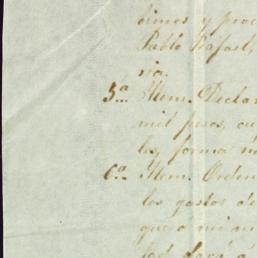 bimos y proc
Pablo Rafael,
ria.
5.a Ytem. Declar
mil pesos, cu
les, forma m
6.a Ytem. Orden
los gastos de
que a mi m
dad dará á